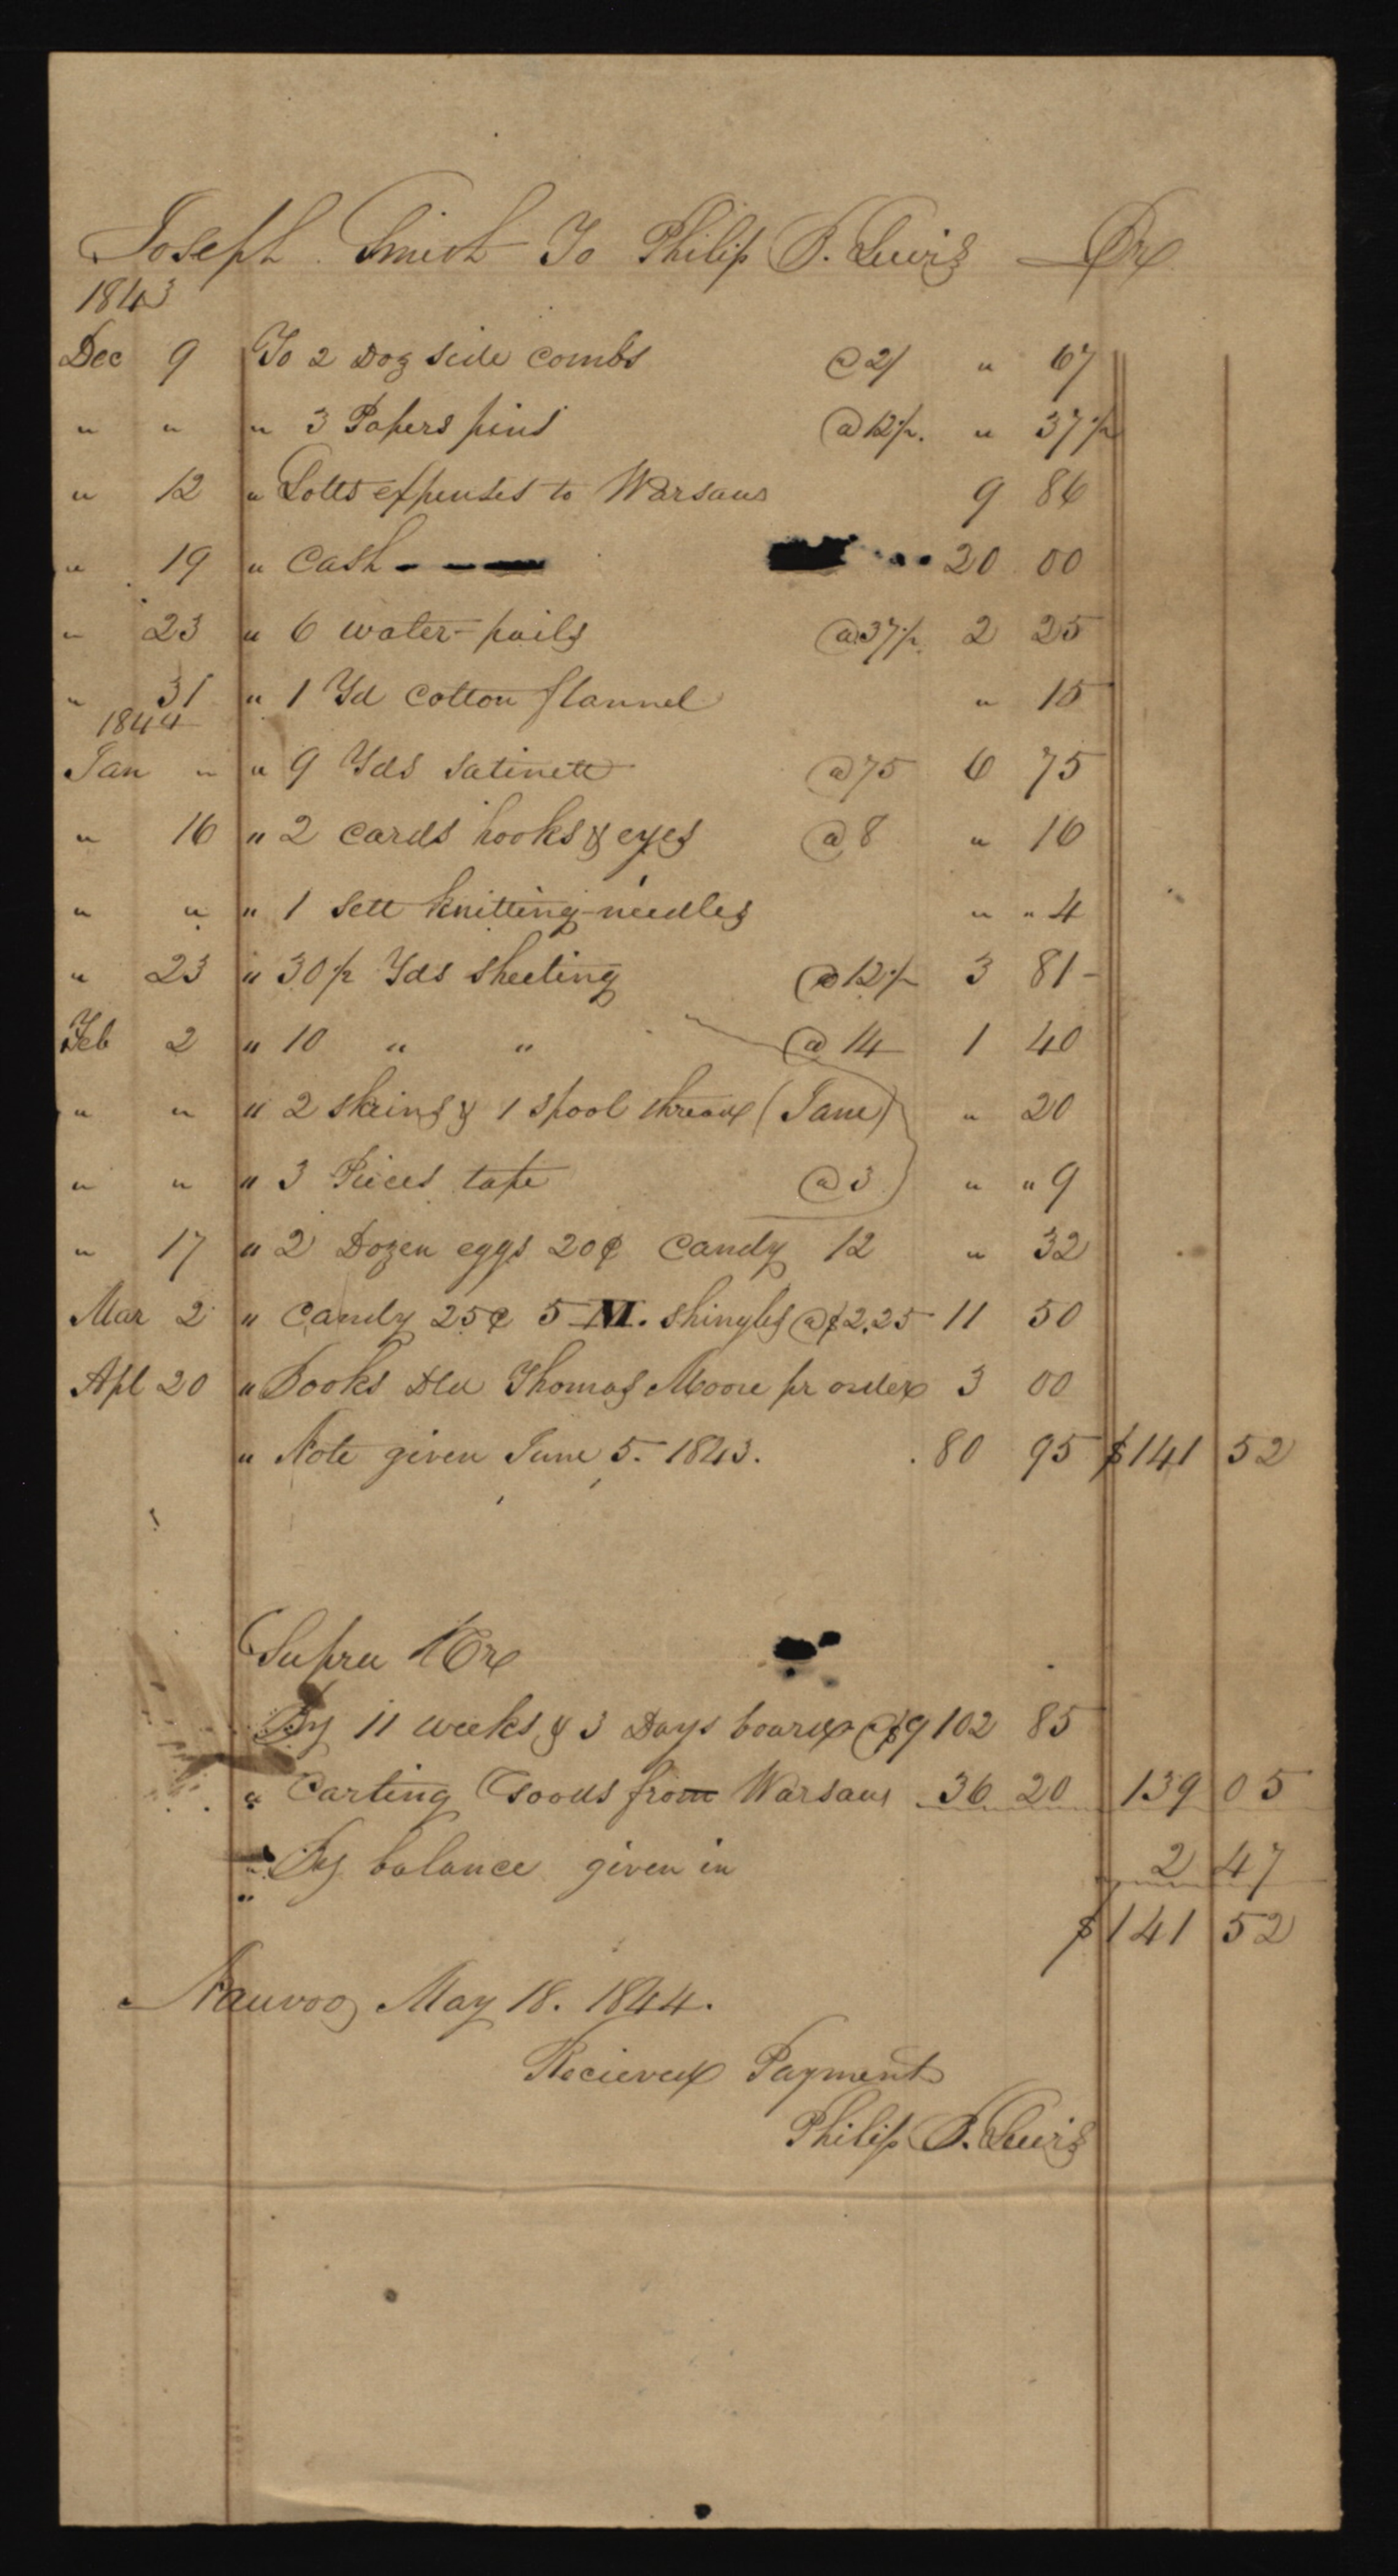 Joseph Smith To Philip B. Lewis Dr
1843
Dec 9 To 2 Doz side combs @2/ " 67
" " " 3 Papers pins @12½. " 37½
" 12 " Lotts expenses to Warsaw 9 86
" 19 " Cash 20 00
" 23 " 6 water-pails @37½. 2 25
" 31 " 1 Yd cotton flannel " 15
1844
Jan " " 9 Yds satinett @75 6 75
" 16 " 2 cards hooks & eyes @8 " 16
" " " 1 sett knitting-needles " " 4
" 23 " 30½ Yds sheeting @12½ 3 81-
Feb 2 " 10 " " @14 1 40
" " " 2 skeins & 1 spool thread (Jane) " 20
" " " 3 Pieces tape @3 " " 9
" 17 " 2 Dozen eggs 20¢ Candy 12 " 32
Mar 2 " Candy 25¢ 5 M. shingles @$2,25 11 50
Apl 20 " Books Dld Thomas Moore pr order 3 00
" Note given June 5. 1843. 80 95 $141 52
Supra Cr
By 11 weeks & 3 Days board @$9 102 85
" Carting Goods from Warsaw 36 20 139 05
" By balance given in 2 47
$141 52
Nauvoo, May 18. 1844.
Recieved Payment
Philip B. Lewis